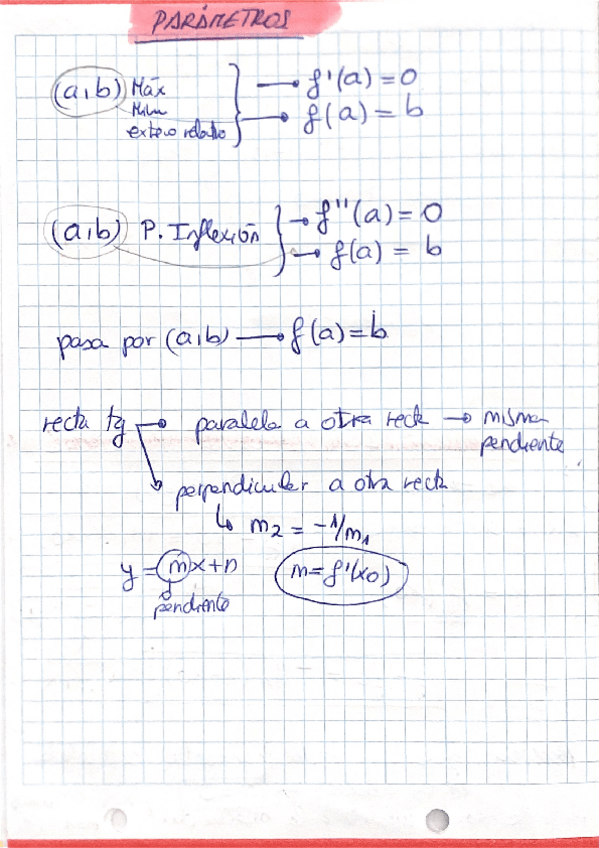 PARÁMETROS
(a,b) Máx → f'(a) = 0
Mín → f(a) = b
extremo relativo
(a,b) P. Inflexión → f''(a) = 0
→ f(a) = b
pasa por (a,b) → f(a) = b
recta tg → paralela a otra recta → misma
pendiente
perpendicular a otra recta
↳ m₂ = -1/m₁
y = mx+n m = f'(x₀)
pendiente